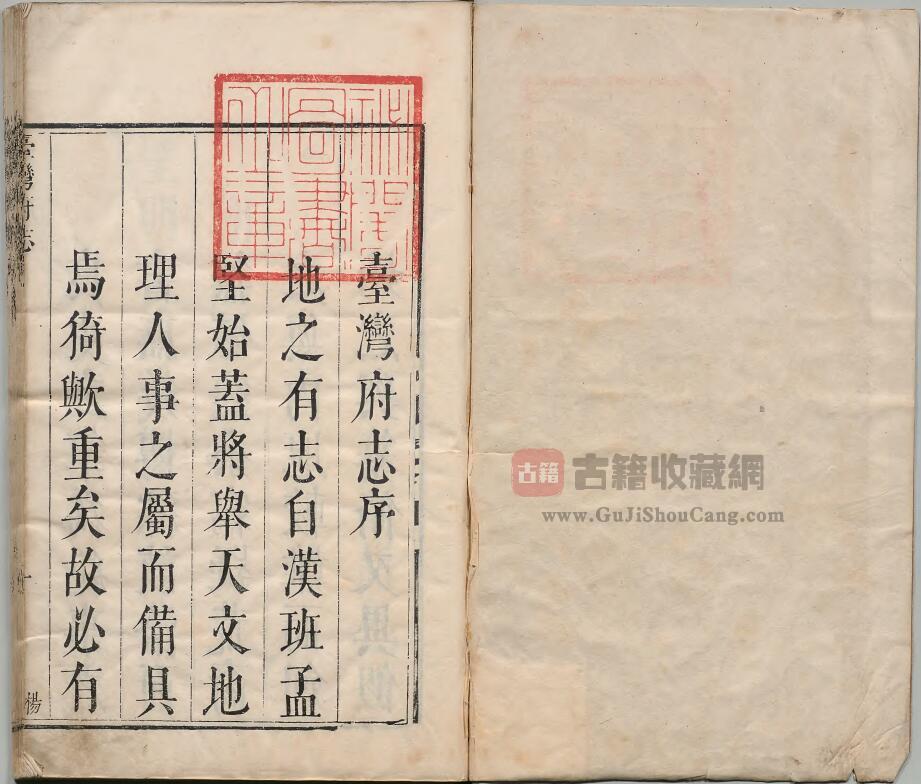 臺灣府志序
地之有志自漢班孟
堅始蓋將舉天文地
理人事之屬而備具
焉猗歟重矣故必有
臺灣府志
楊
祕閣
圖書
之章
古籍
古籍收藏網
www.GuJiShouCang.com